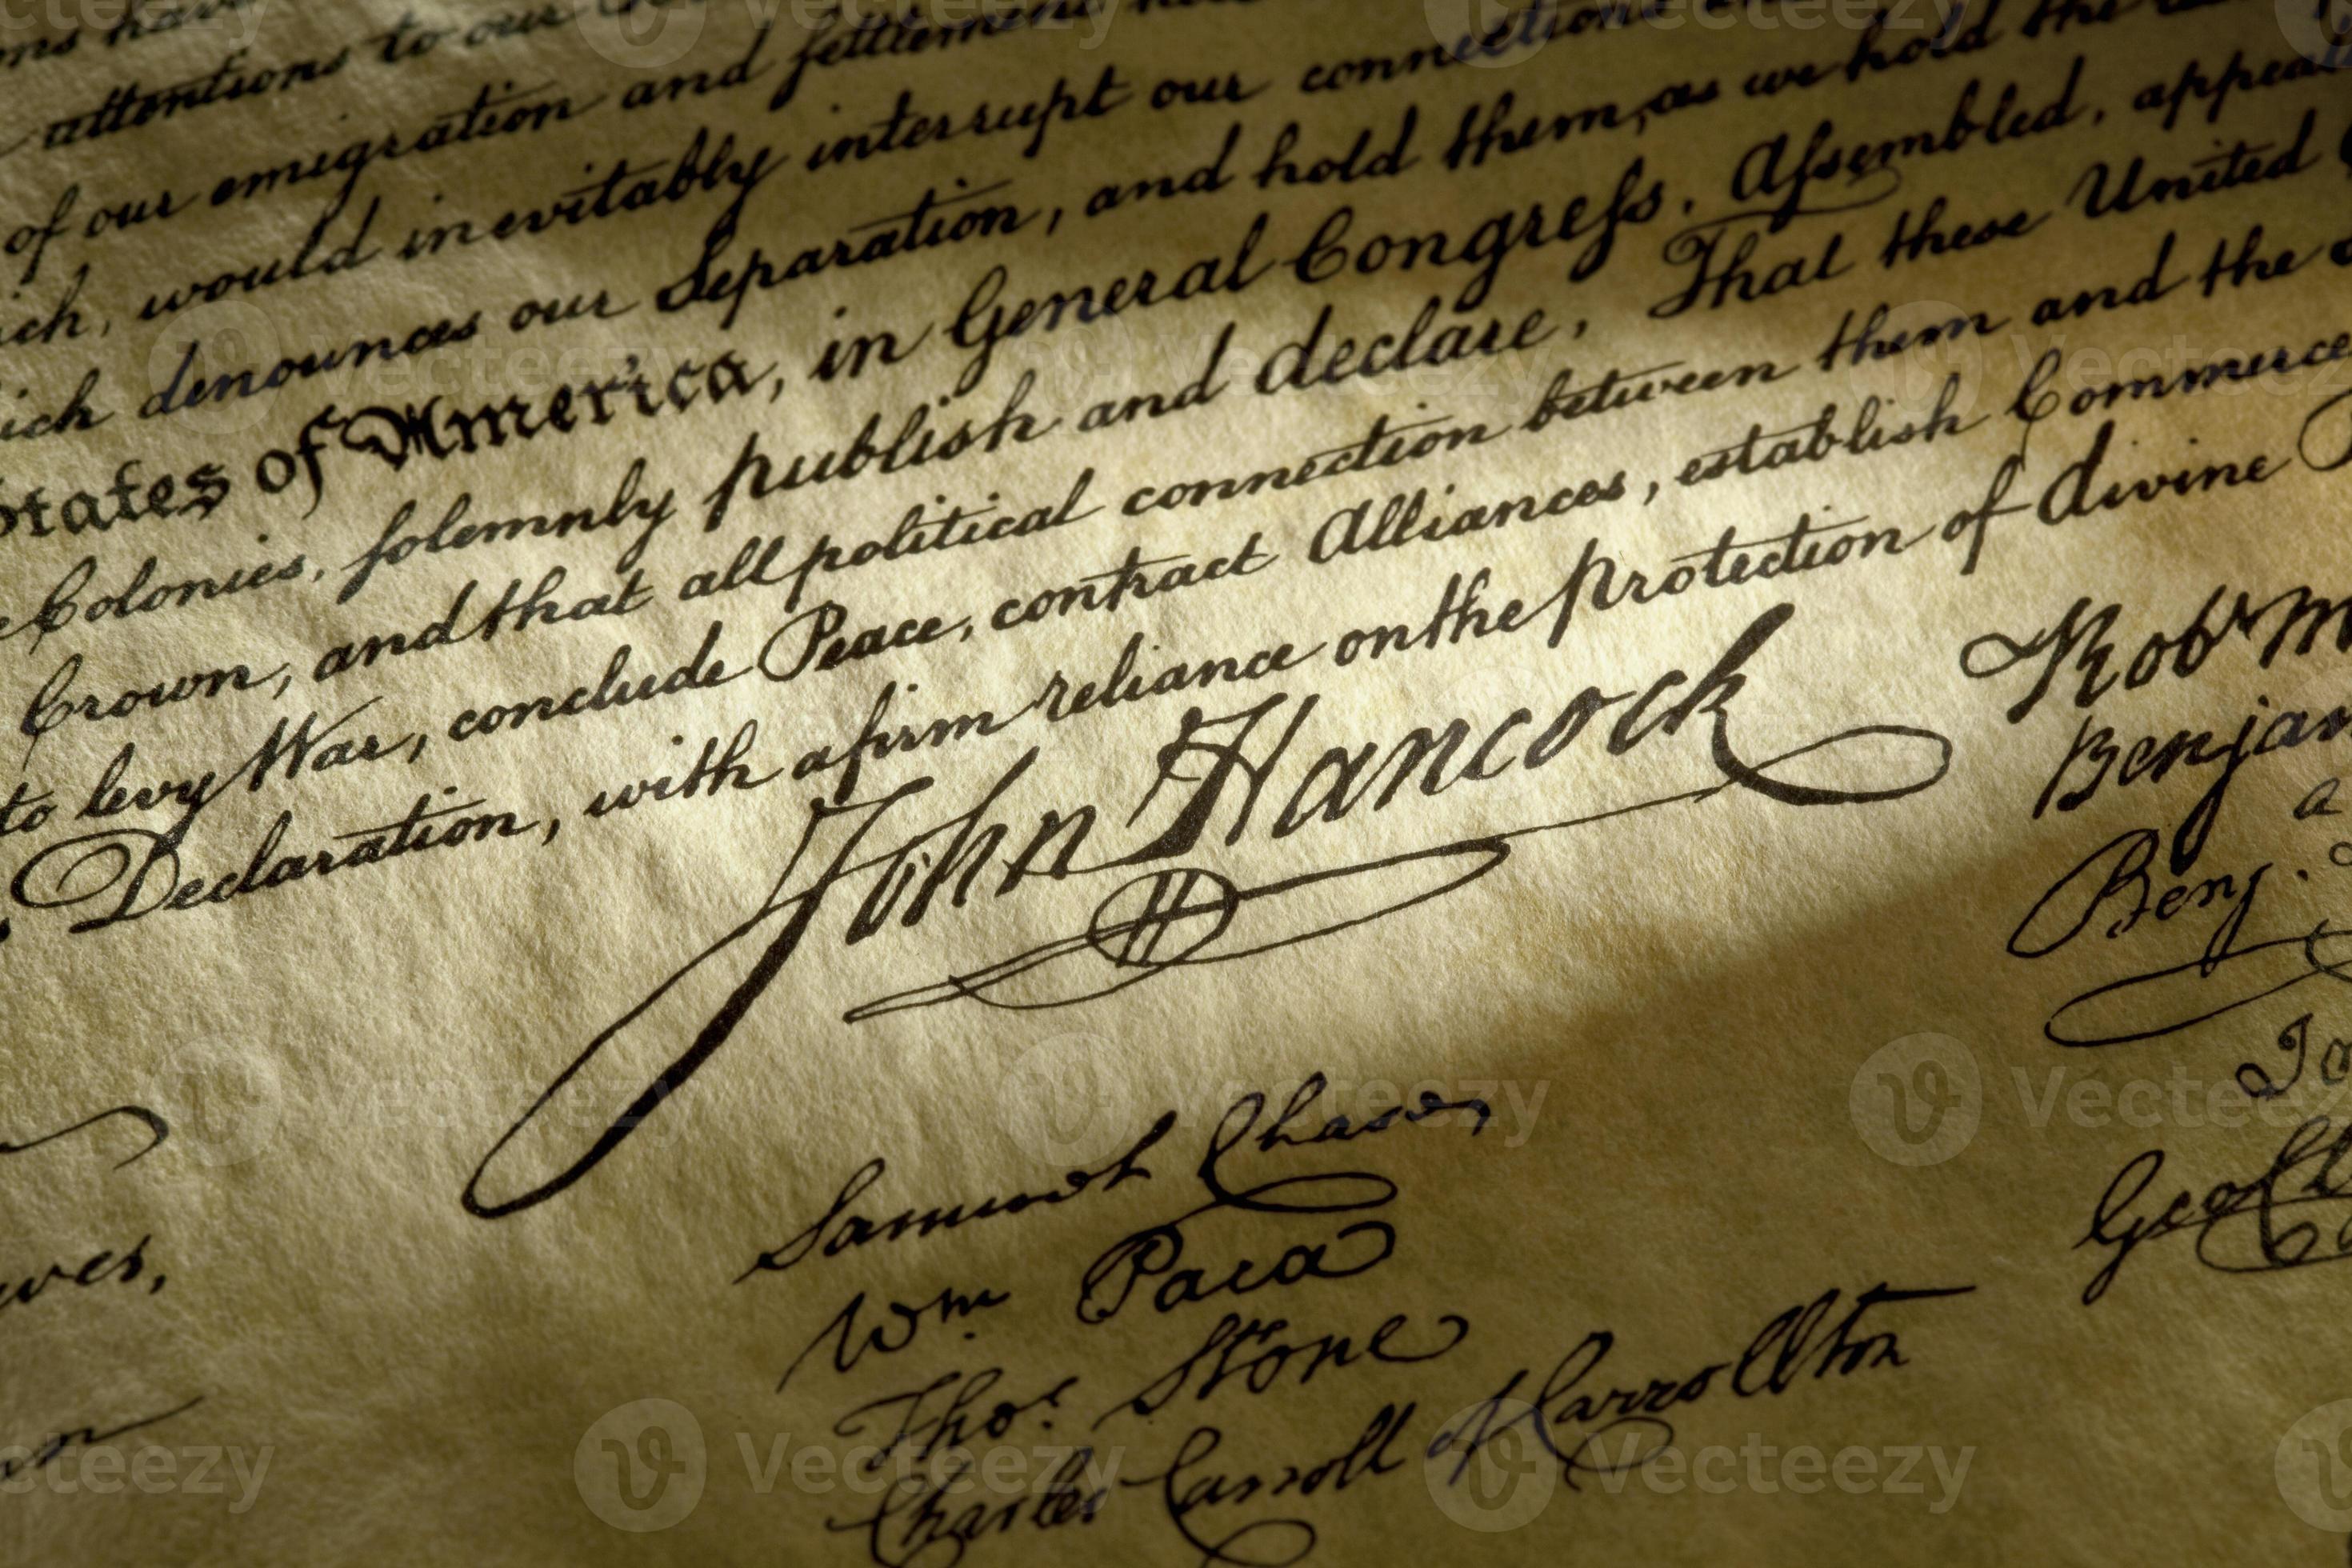 attentions to our
of our emigration and settlement
would inevitably interrupt our connections
denounces our Separation, and hold them, as we hold the
States of America, in General Congress, Assembled, appeal
Colonies, solemnly publish and declare, That these United
Crown, and that all political connection between them and the
to levy War, conclude Peace, contract Alliances, establish Commerce
Declaration, with a firm reliance on the protection of divine
John Hancock
Robt M
Benjam
Benj.
Samuel Chase
Wm Paca
Thos. Stone
Charles Carroll of Carrollton
Geo
Vecteezy